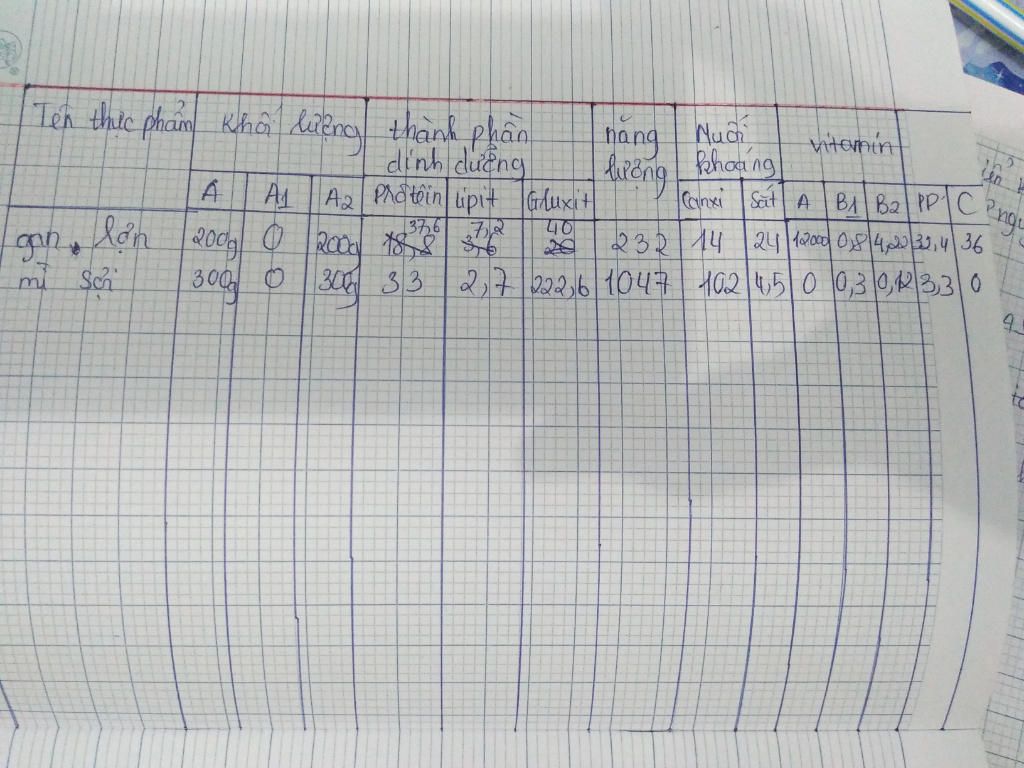 Tên thực phẩm Khối lượng thành phần dinh dưỡng năng lượng Muối khoáng vitamin
A A1 A2 Prôtêin Lipit Gluxit Canxi Sắt A B1 B2 PP C
37,6 7,2 40
gan lợn 200g 0 200g 18,8 3,6 20 232 14 24 12000 0,8 4,22 32,4 36
mì sợi 300g 0 300g 33 2,7 222,6 1047 102 4,5 0 0,3 0,12 3,3 0